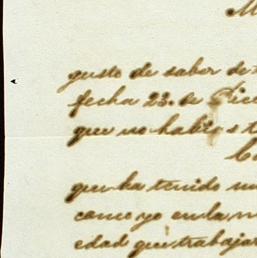 M
gusto de saber de
fecha 23. de Dice
que no habia s t
que ha tenido
como yo en la m
edad que trabajar